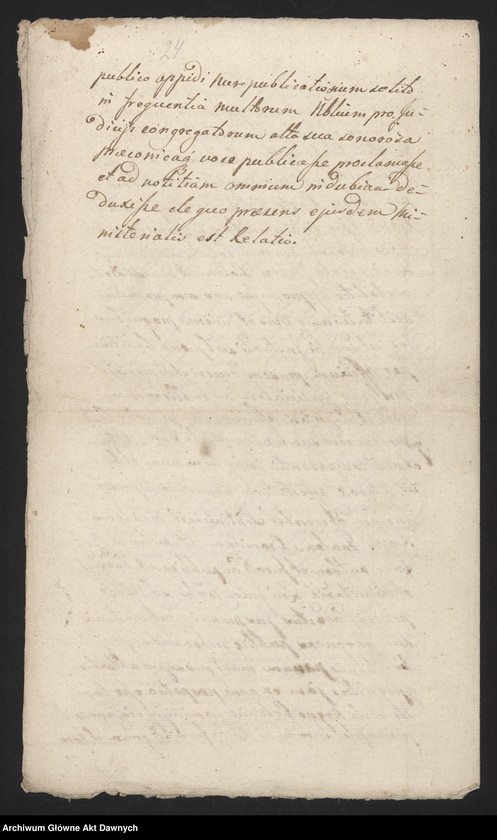 24
publico oppidi hujus publicationum solito
in frequentia multorum Nbilium pro Ju-
dicijs congregatorum alta sua sonorosa
præconicaq voce publicasse proclamasse
et ad notitiam omnium indubiam de-
duxisse de quo præsens ejusdem Mi-
nisterialis est Relatio.
Archiwum Główne Akt Dawnych